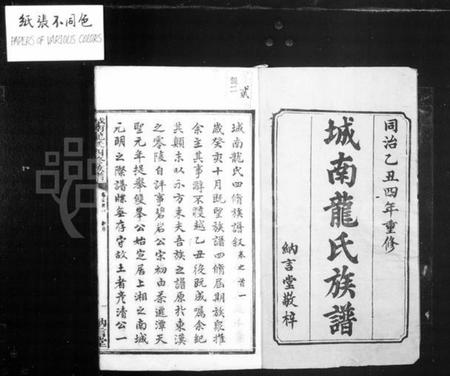 紙張不同色
PAPERS OF VARIOUS COLORS
同治乙丑四年重修
城南龍氏族譜
納言堂敬梓
貳
城南龍氏四修族譜叙 卷之首一
歲癸亥十月既望族譜四修届期族衆推
余主其事辭不獲越乙丑後既成囑余紀
其顛末以示方來夫吾族之譜原於東漢
之零陵自評事碧君公宋初由茶遷潭天
聖元年提舉俊拳公始定居上湘之南城
元明之際譜牒無存守故土者彦清公一
納言堂